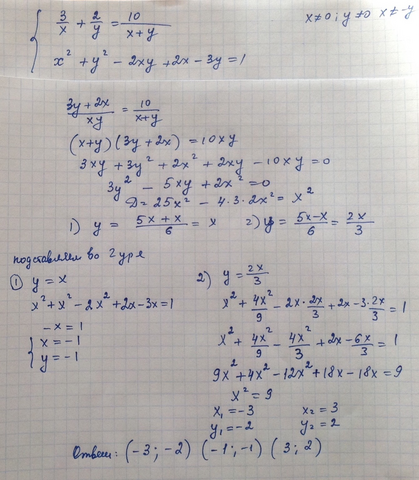 { 3/x + 2/y = 10/(x+y)   x≠0; y≠0 x≠-y
x² + y² - 2xy + 2x - 3y = 1
(3y+2x)/xy = 10/(x+y)
(x+y)(3y+2x) = 10xy
3xy + 3y² + 2x² + 2xy - 10xy = 0
3y² - 5xy + 2x² = 0
D = 25x² - 4·3·2x² = x²
1) y = (5x+x)/6 = x   2) y = (5x-x)/6 = 2x/3
подставляем во 2 ур-е
① y = x
x² + x² - 2x² + 2x - 3x = 1
-x = 1
{ x = -1
y = -1
2) y = 2x/3
x² + 4x²/9 - 2x·2x/3 + 2x - 3·2x/3 = 1
x² + 4x²/9 - 4x²/3 + 2x - 6x/3 = 1
9x² + 4x² - 12x² + 18x - 18x = 9
x² = 9
x₁ = -3   x₂ = 3
y₁ = -2   y₂ = 2
Ответ: (-3; -2) (-1; -1) (3; 2)